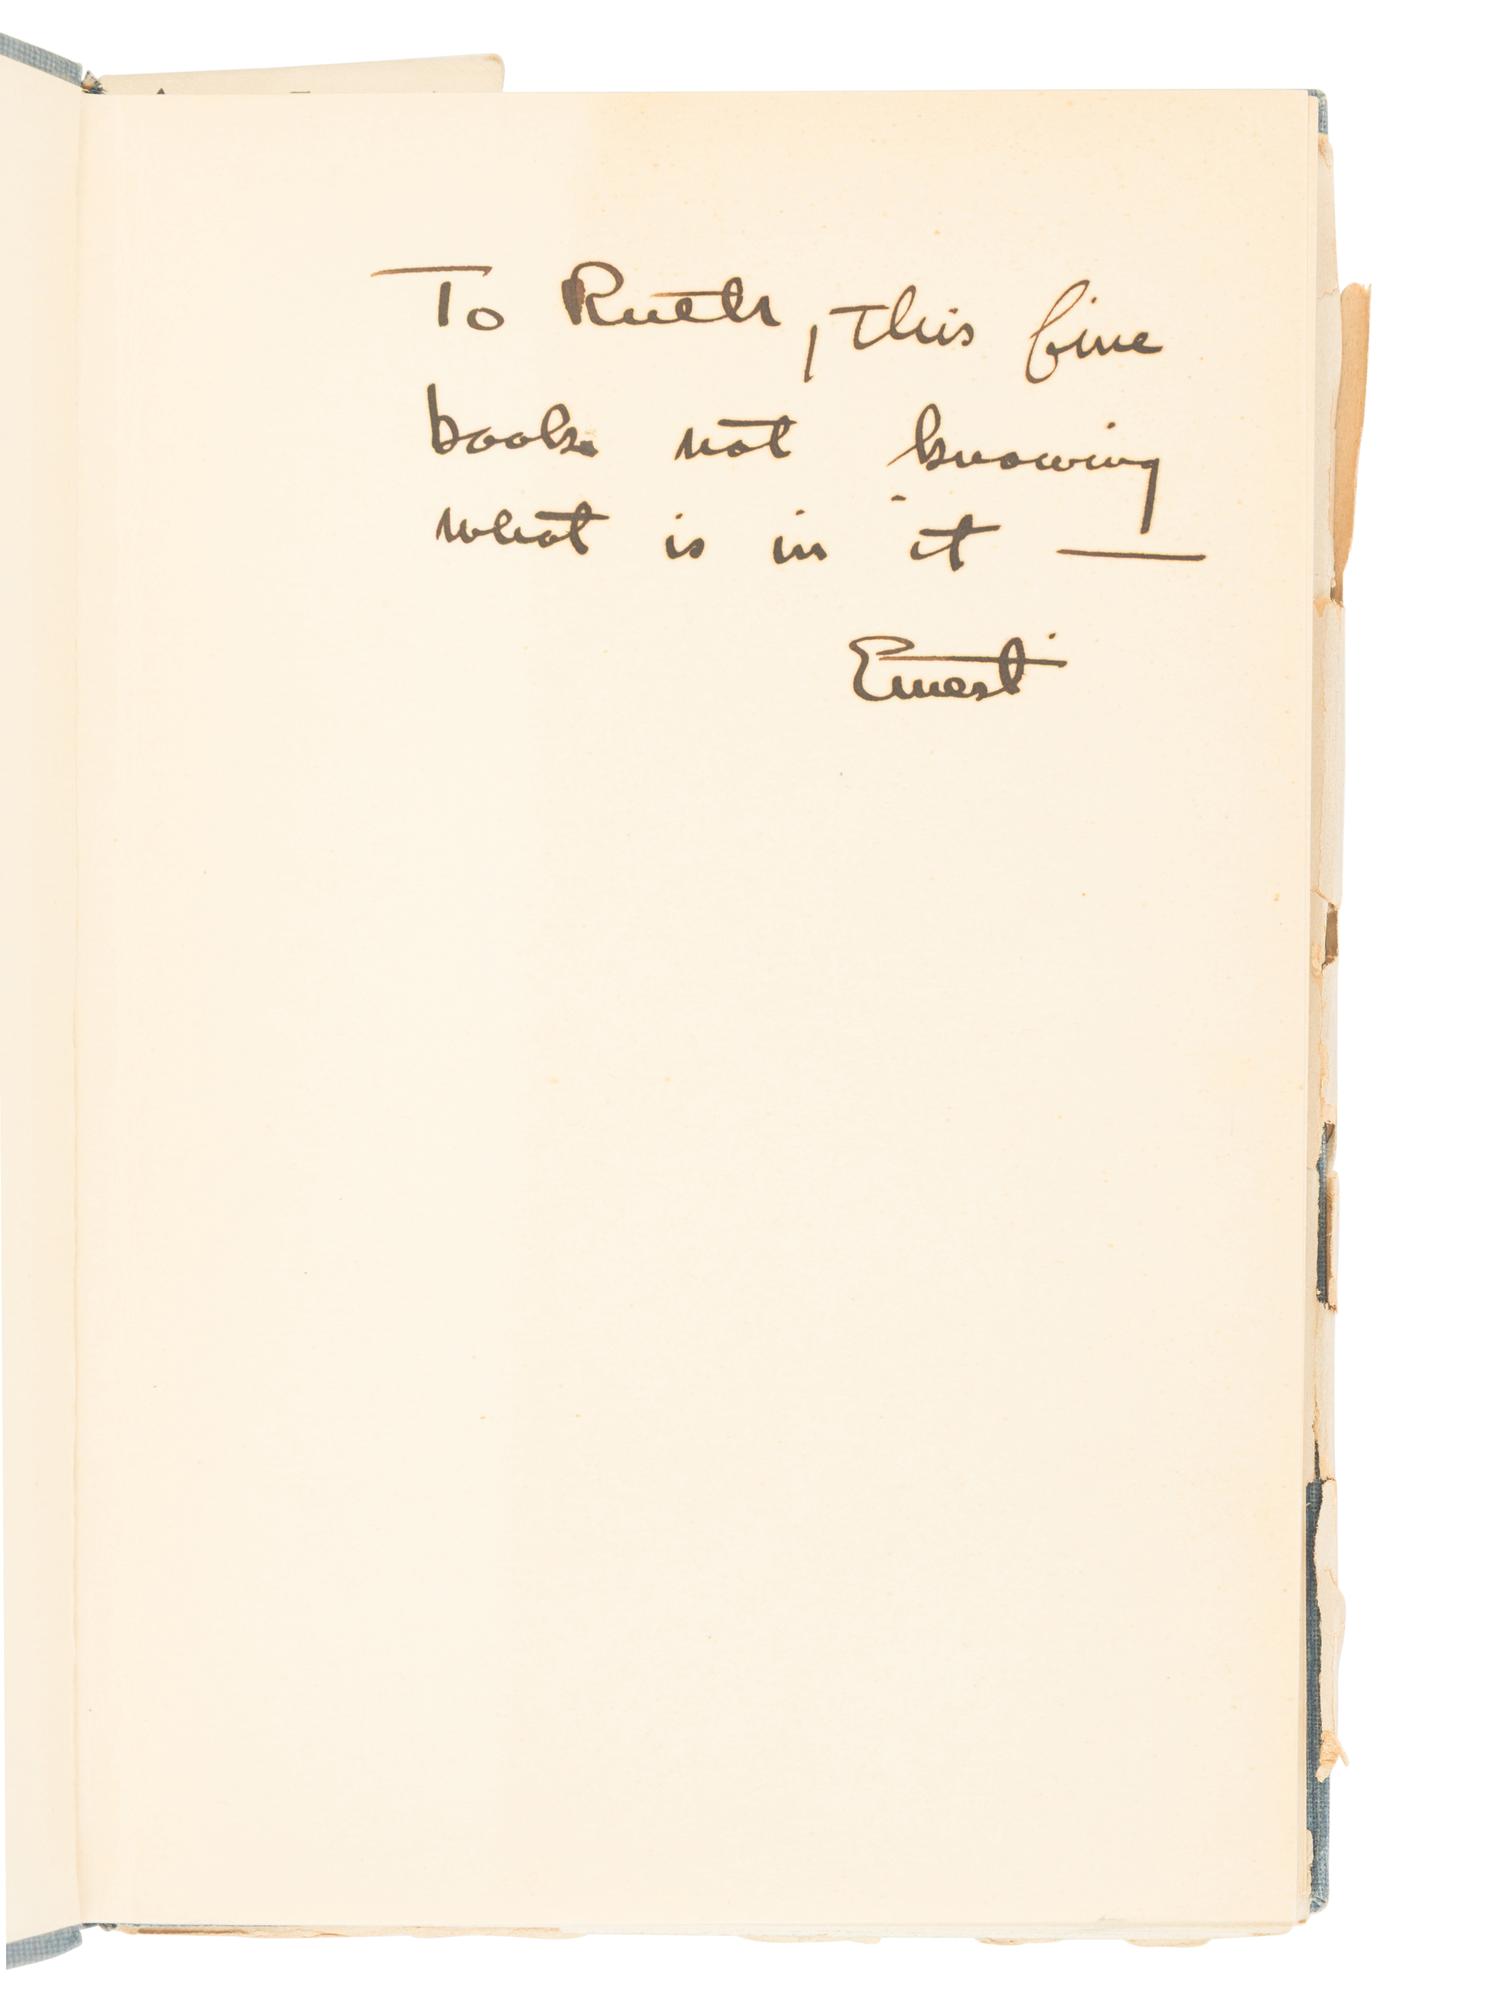 To Ruth, this fine
book not knowing
what is in it —
Ernest